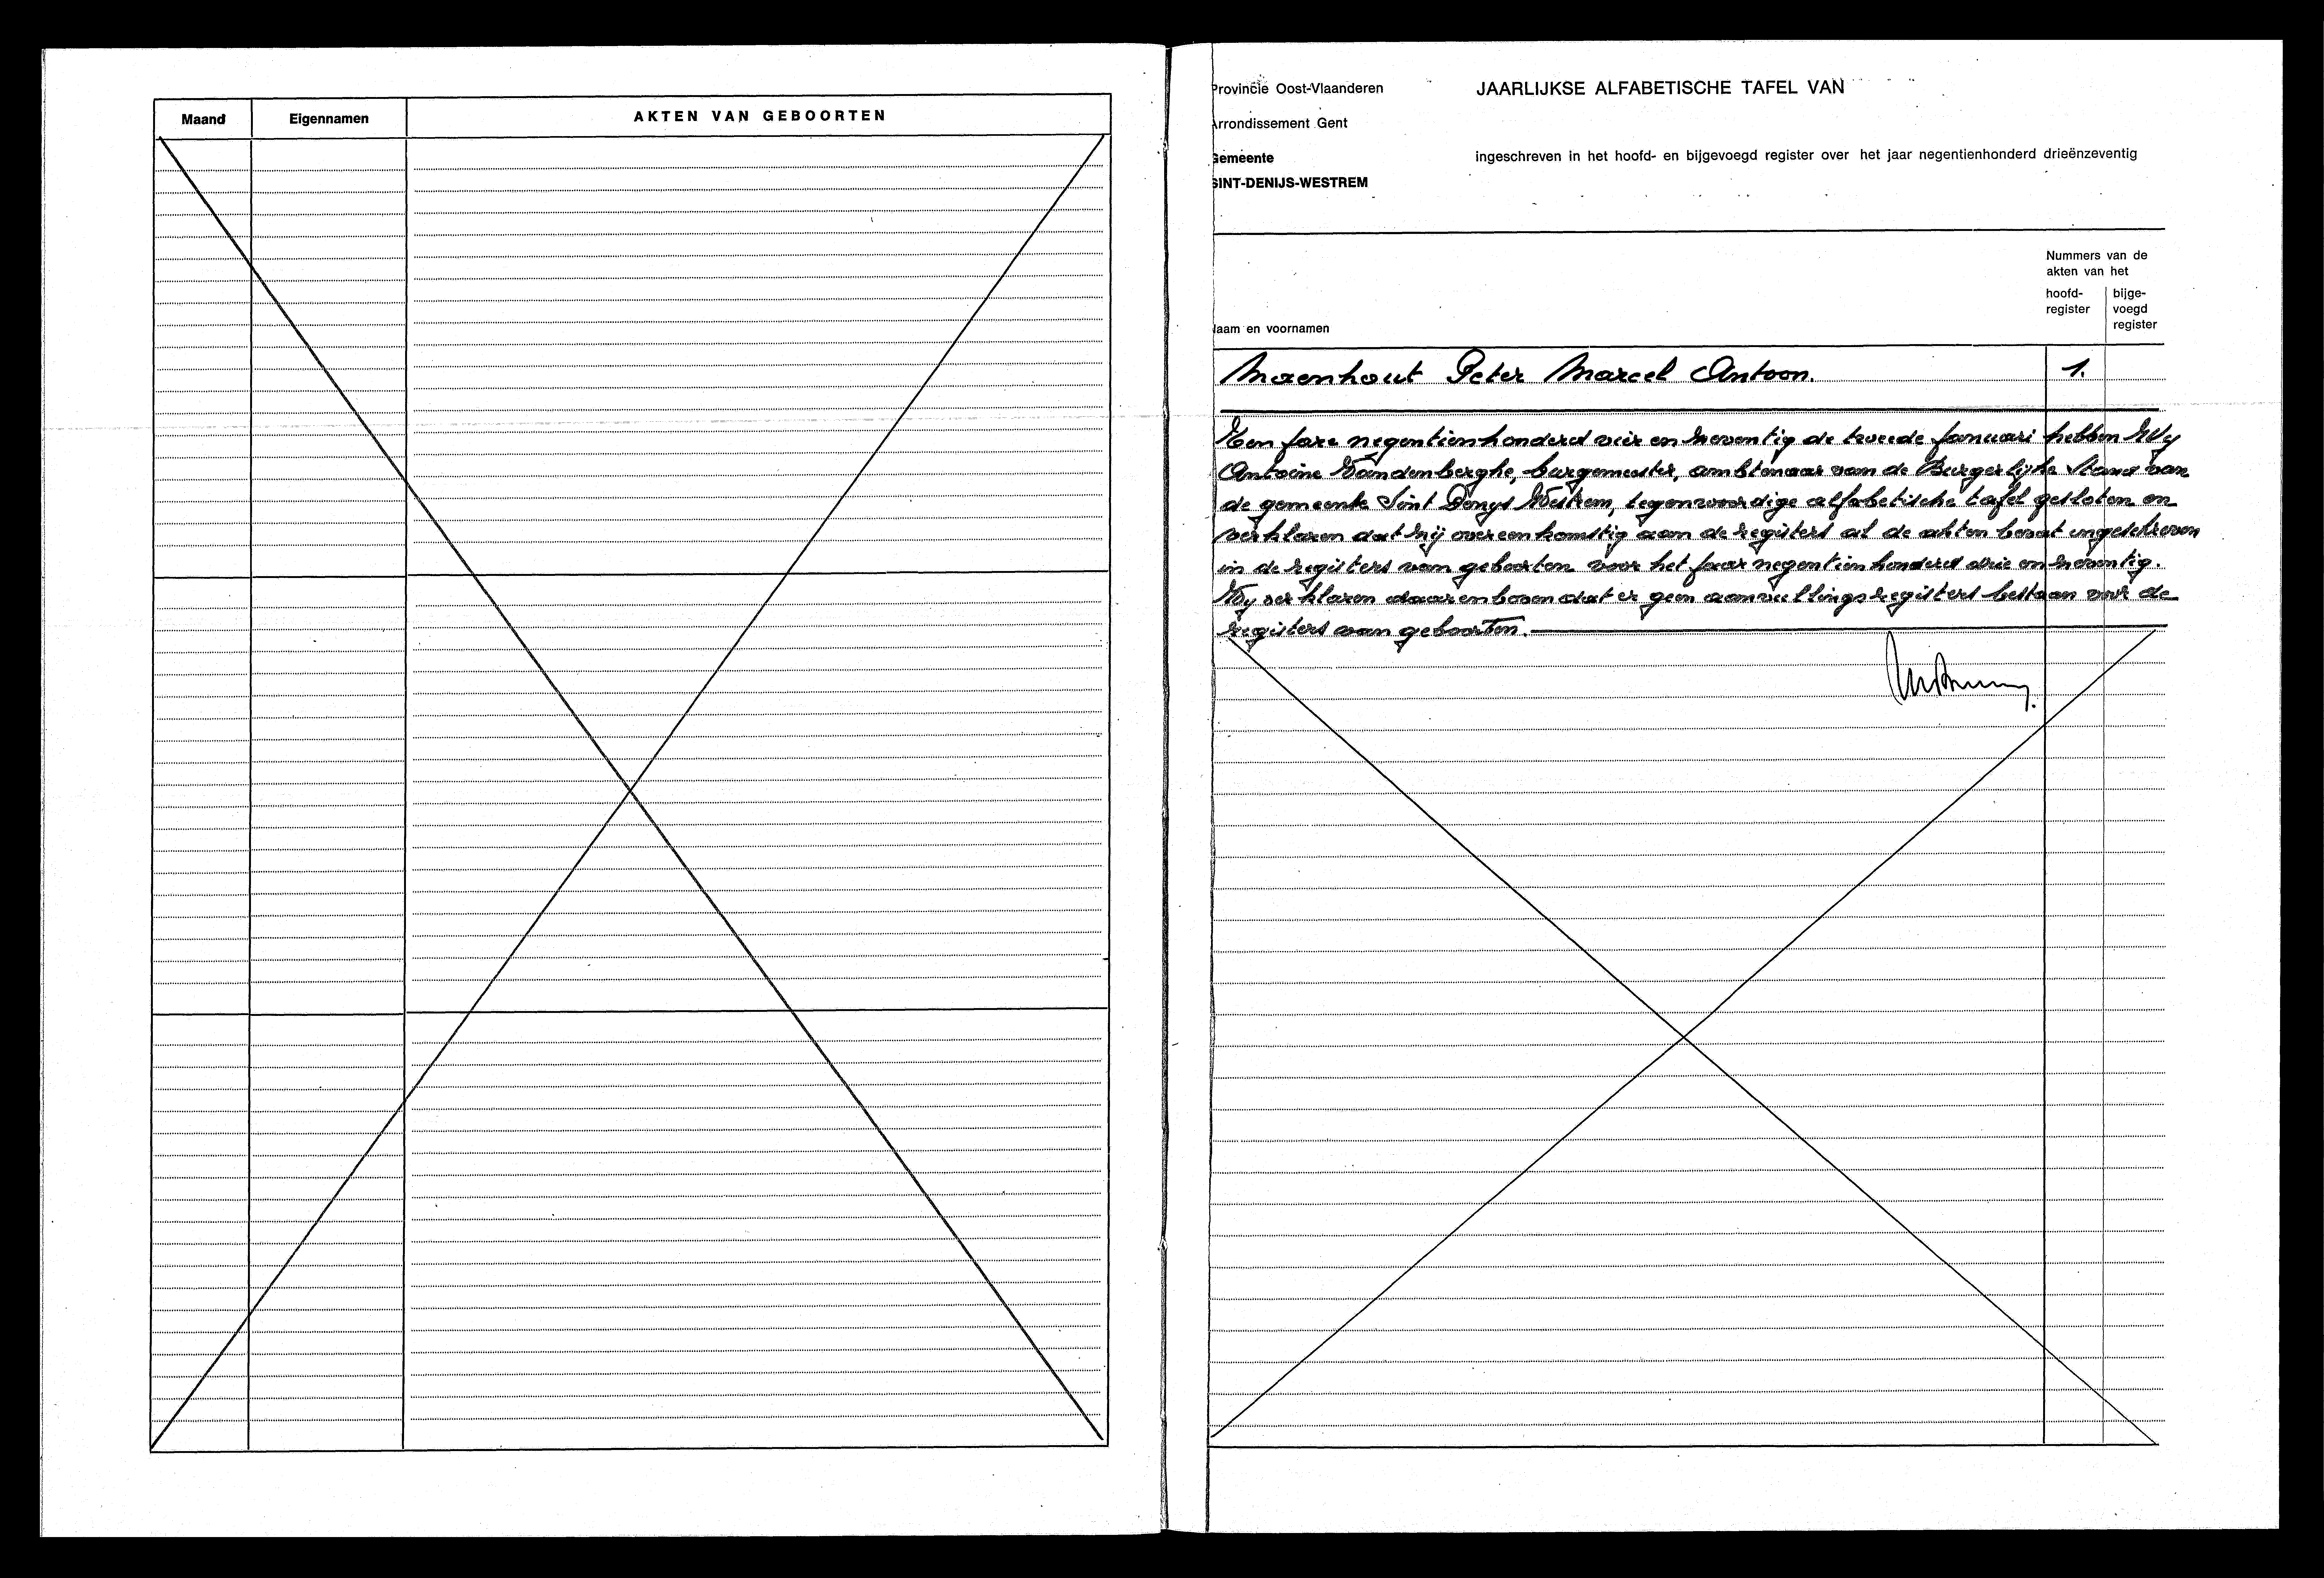 Maand Eigennamen AKTEN VAN GEBOORTEN
Provincie Oost-Vlaanderen JAARLIJKSE ALFABETISCHE TAFEL VAN
Arrondissement Gent
Gemeente ingeschreven in het hoofd- en bijgevoegd register over het jaar negentienhonderd drieënzeventig
SINT-DENIJS-WESTREM
Nummers van de
akten van het
hoofd- bijge-
register voegd
register
Naam en voornamen
Maenhout Peter Marcel Antoon. 1.
Ten jare negentienhonderd vier en zeventig de tweede januari hebben Wy
Antoine Vandenberghe, burgemeester, ambtenaar van de Burgerlyke Stand van
de gemeente Sint Denys Westrem, tegenwoordige alfabetische tafel gesloten en
verklaren dat hij overeenkomstig aan de registers al de akten bevat ingeschreven
in de registers van geboorten voor het jaar negentienhonderd drie en zeventig.
Wy verklaren daarenboven dat er geen aanvullingsregisters bestaan voor de
registers van geboorten.